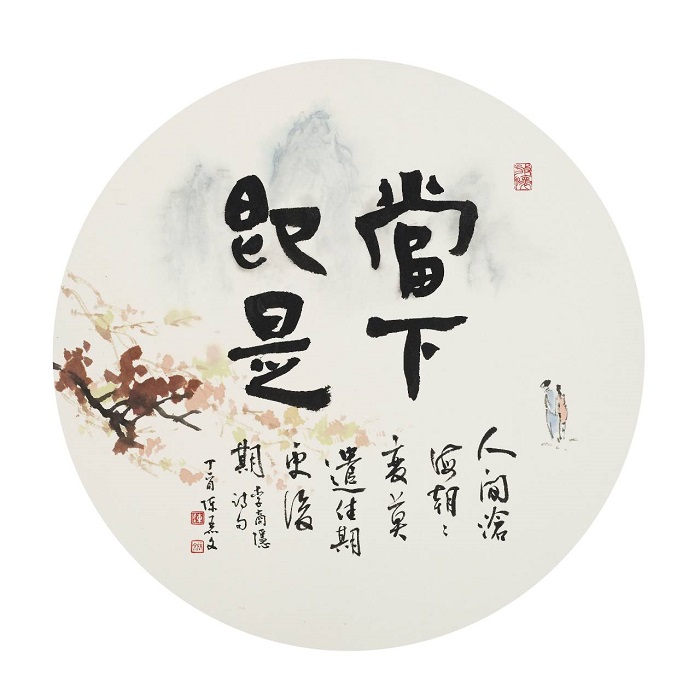 當下
即是
人間滄
海朝〻
變莫
遣佳期
更後
期
李商隱
詩句
丁酉 陳 文